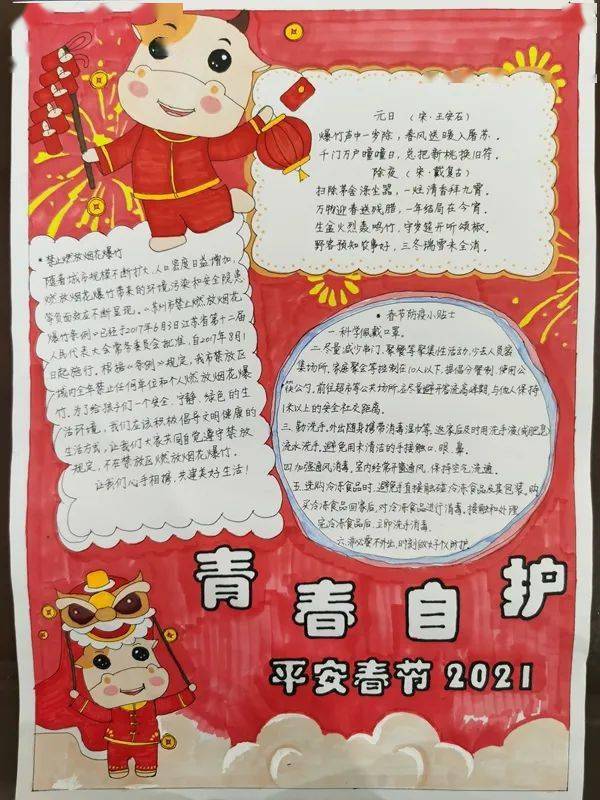 元日 （宋·王安石）
爆竹声中一岁除，春风送暖入屠苏．
千门万户曈曈日，总把新桃换旧符．
除夜 （宋·戴复古）
扫除茅舍涤尘嚣，一炷清香拜九霄．
万物迎春送残腊，一年结局在今宵．
生金火烈轰鸣竹，守岁筵开听颂椒．
野客预知农事好，三冬瑞雪未全消．
禁止燃放烟花爆竹
随着城市规模不断扩大，人口密度日益增加，
燃放烟花爆竹带来的环境污染和安全隐患
等负面效应不断显现。《苏州市禁止燃放烟花
爆竹条例》已经于2017年6月3日江苏省第十二届
人民代表大会常务委员会批准，自2017年8月1
日起施行。根据《条例》规定，我市禁放区
域内全年禁止任何单位和个人燃放烟花爆
竹。为了给孩子们一个安全、宁静、绿色的生
活环境，我们应该积极倡导文明健康的
生活方式，让我们大家共同自觉遵守禁放
规定，不在禁放区燃放烟花爆竹。
让我们心手相携，共建美好生活！
春节防疫小贴士
一．科学佩戴口罩。
二．尽量减少串门，聚餐等聚集性活动，少去人员密
集场所，家庭聚会等控制在10人以下，提倡分餐制，使用公
筷公勺，前往超市等公共场所，应尽量避开客流高峰期，与他人保持
1米以上的安全社交距离。
三．勤洗手，外出随身携带消毒湿巾等，返家后及时用洗手液(或肥皂)
流水洗手，避免用未清洁的手接触口、眼、鼻。
四．加强通风消毒，室内经常开窗通风，保持空气流通。
五．选购冷冻食品时，避免手直接触碰冷冻食品及其包装，购
买冷冻食品回家后，对冷冻食品进行消毒，接触和处理
完冷冻食品后，立即洗手消毒。
六．非必要不外出，时刻做好个人防护。
青春自护
平安春节2021